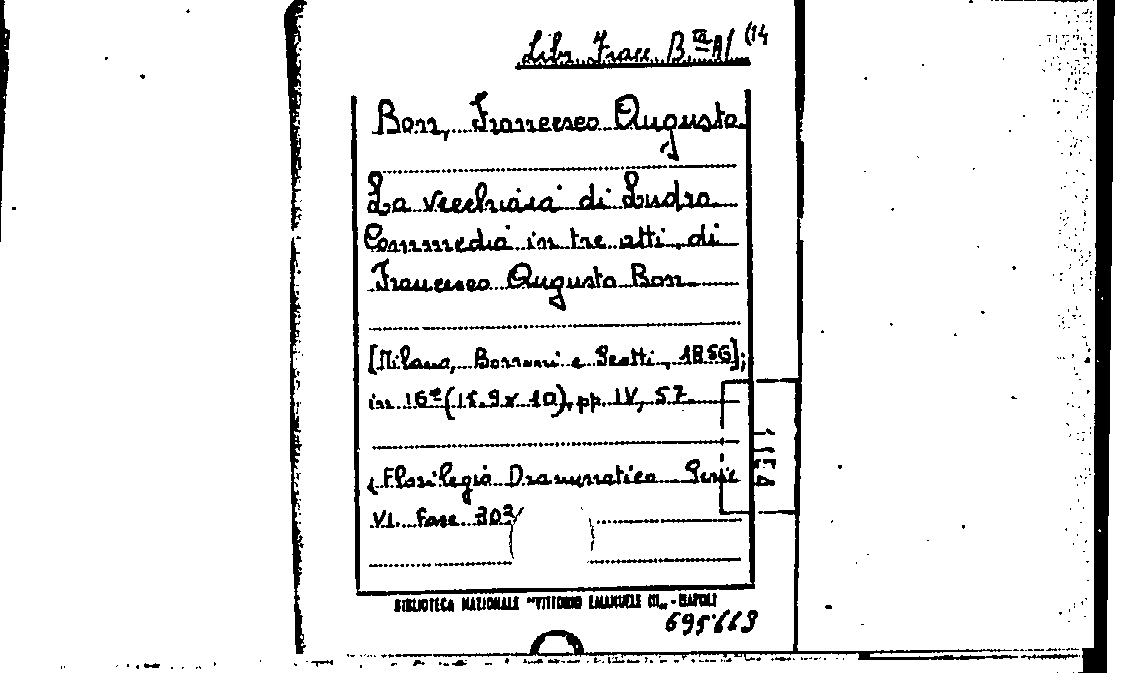 Bon, Francesco Augusto
La vecchiaia di Ludro
Commedia in tre atti di
Francesco Augusto Bon
[Milano, Borroni e Scotti, 1856];
in 16º (15.9 x 10), pp. IV, 57
(Florilegio Drammatico Serie
VI. Fasc.
BIBLIOTECA NAZIONALE "VITTORIO EMANUELE III" - NAPOLI
695663